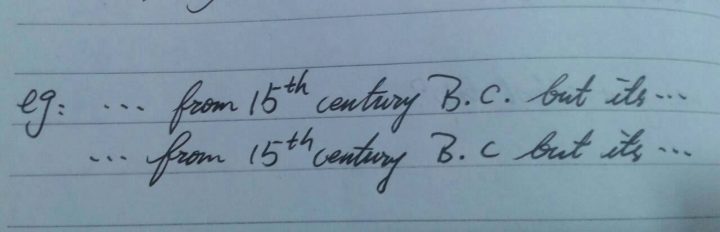 eg: ... from 15th century B.C. but its ...
... from 15th century B.C but its ...